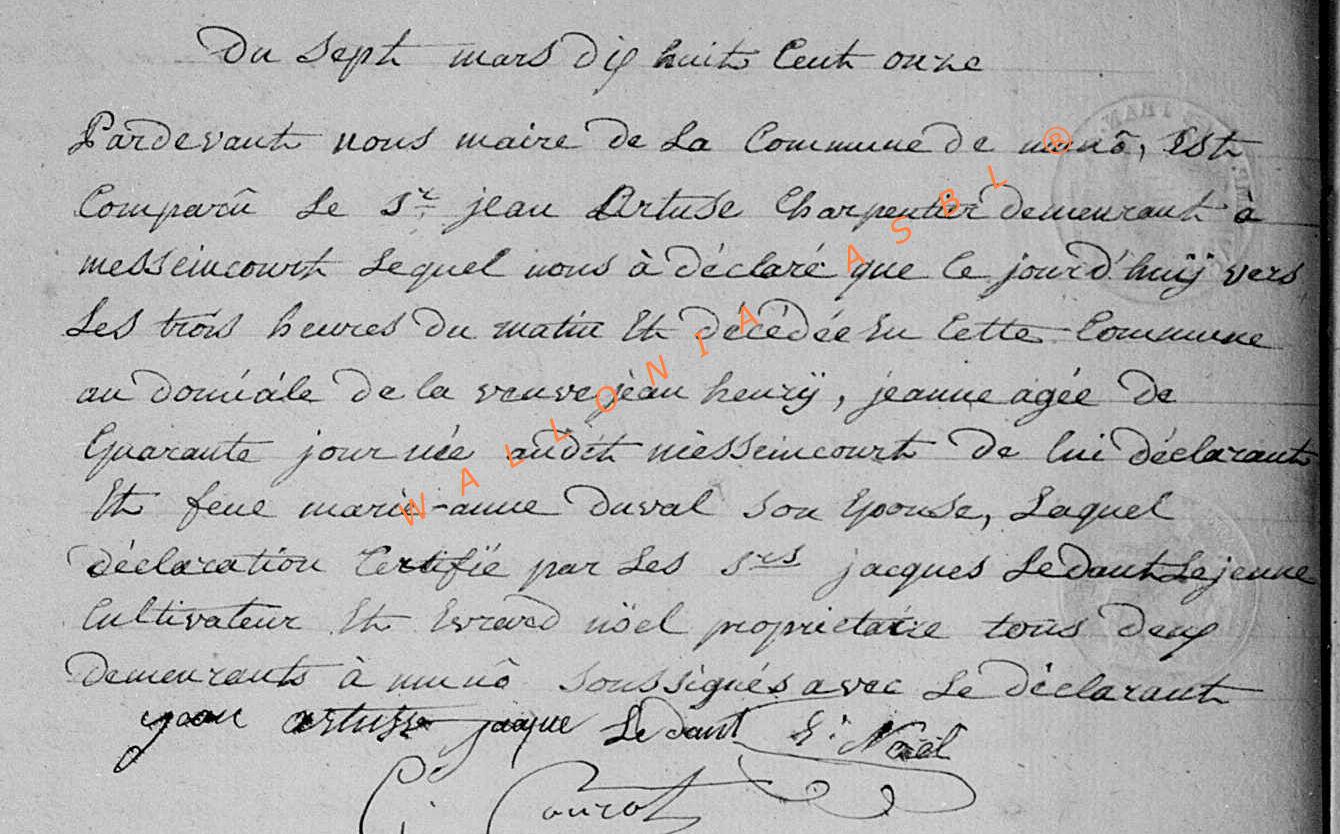 Du sept mars dix huit Cent onze
Pardevant nous maire de La Commune de munô, Est
Comparû Le Sr. jean Artuse Charpentier demeurant à
messeincourt Lequel nous à déclaré que le jourd'huÿ vers
Les trois heures du matin Et décédée En Cette Commune
au domicile de la veuve jéan henrÿ, jeanne agée de
Quarante jour née audit messeincourt de lui déclarant
Et feue marie-anne duval son Epouse, Laquel
déclaration Certifié par Les Srs jacques Ledant Le jeune
Cultivateur Et Evrard nöel proprietaire tous deux
demeurants à munô soussignés avec Le déclarant
jean artusse jaque Ledant E: Noël
WALLONIA ASBL ®